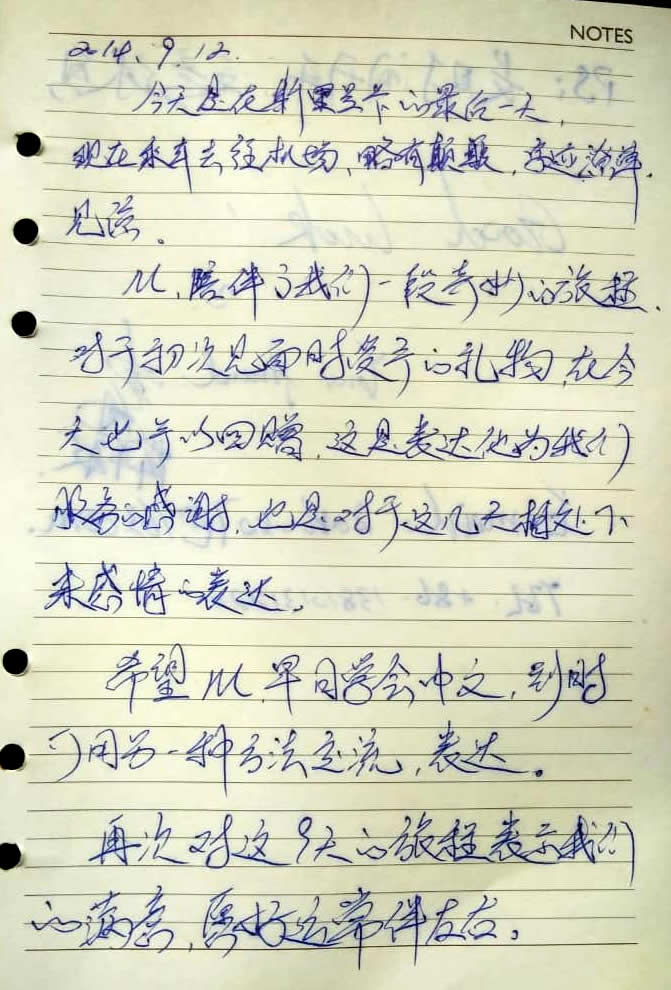 NOTES
2014.9.12.
今天是在斯里兰卡的最后一天,
现在乘车去往机场,略有颠簸,字迹潦草,
见谅。
M,陪伴了我们一段奇妙的旅程,
对于初次见面时受予的礼物,在今
天也予以回赠,这是表达他为我们
服务的感谢,也是对于这几天相处下
来感情的表达。
希望M,早日学会中文,到时
可用另一种方法交流,表达。
再次对这9天的旅程表示我们
的满意,愿好运常伴左右。